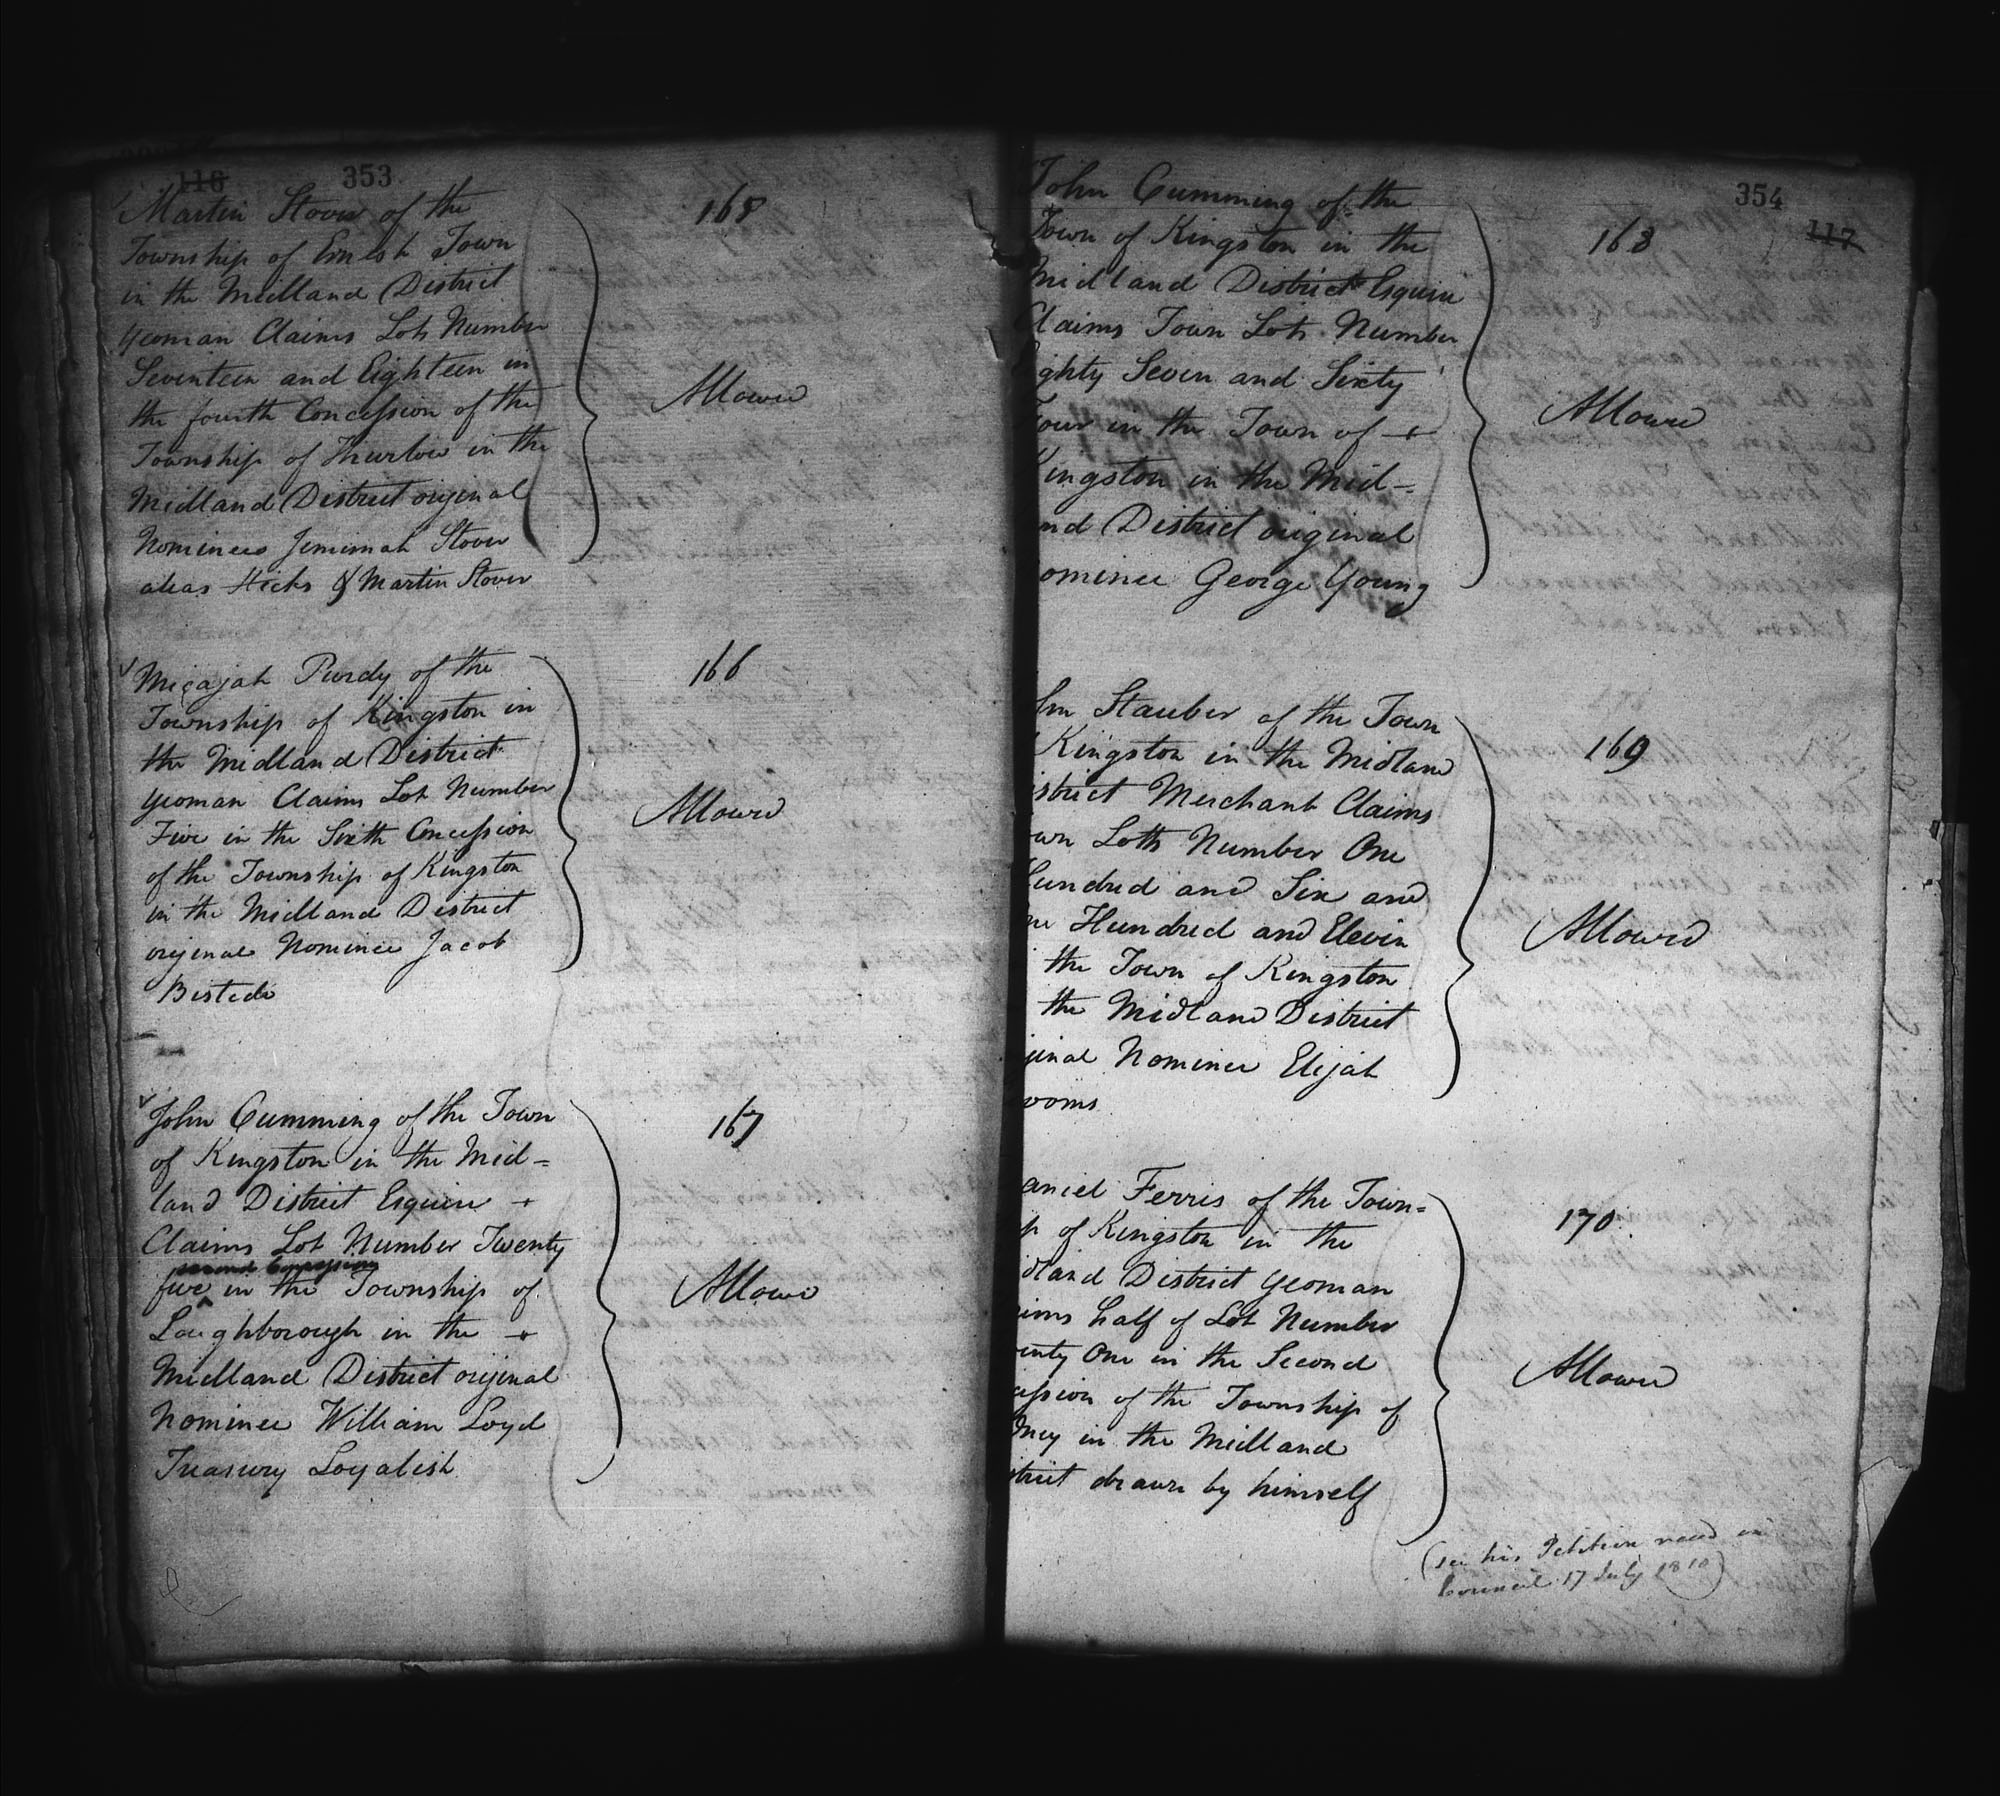 116 353
Martin Stover of the
Township of Ernest Town
in the Midland District
Yeoman Claims Lots Number
Seventeen and Eighteen in
the fourth Concession of the
Township of Thurlow in the
Midland District original
Nominees Jemimah Stover
alias Hicks & Martin Stover
165
Allowed
Micajah Purdy of the
Township of Kingston in
the Midland District
Yeoman Claims Lot Number
Five in the Sixth Concession
of the Township of Kingston
in the Midland District
original Nominee Jacob
Bistedo
166
Allowed
John Cumming of the Town
of Kingston in the Mid=
land District Esquire +
Claims Lot Number Twenty
second Concession
five in the Township of
Loughborough in the +
Midland District original
Nominee William Loyd
Treasury Loyalist
167
Allowed
354
117
John Cumming of the
Town of Kingston in the
Midland District Esquire
Claims Town Lots Number
ighty Seven and Sixty
Four in the Town of +
Kingston in the Mid=
nd District original
ominee George Young
168
Allowed
hn Stauber of the Town
Kingston in the Midland
istrict Merchant Claims
own Lotts Number One
Hundred and Six and
ne Hundred and Eleven
the Town of Kingston
the Midland District
ginal Nominee Elijah
ooms
169
Allowed
aniel Ferris of the Town=
p of Kingston in the
dland District Yeoman
ims half of Lot Number
enty One in the Second
cession of the Township of
dney in the Midland
strict drawn by himself
170
Allowed
(see his Petition read in
Council 17 July 1810)